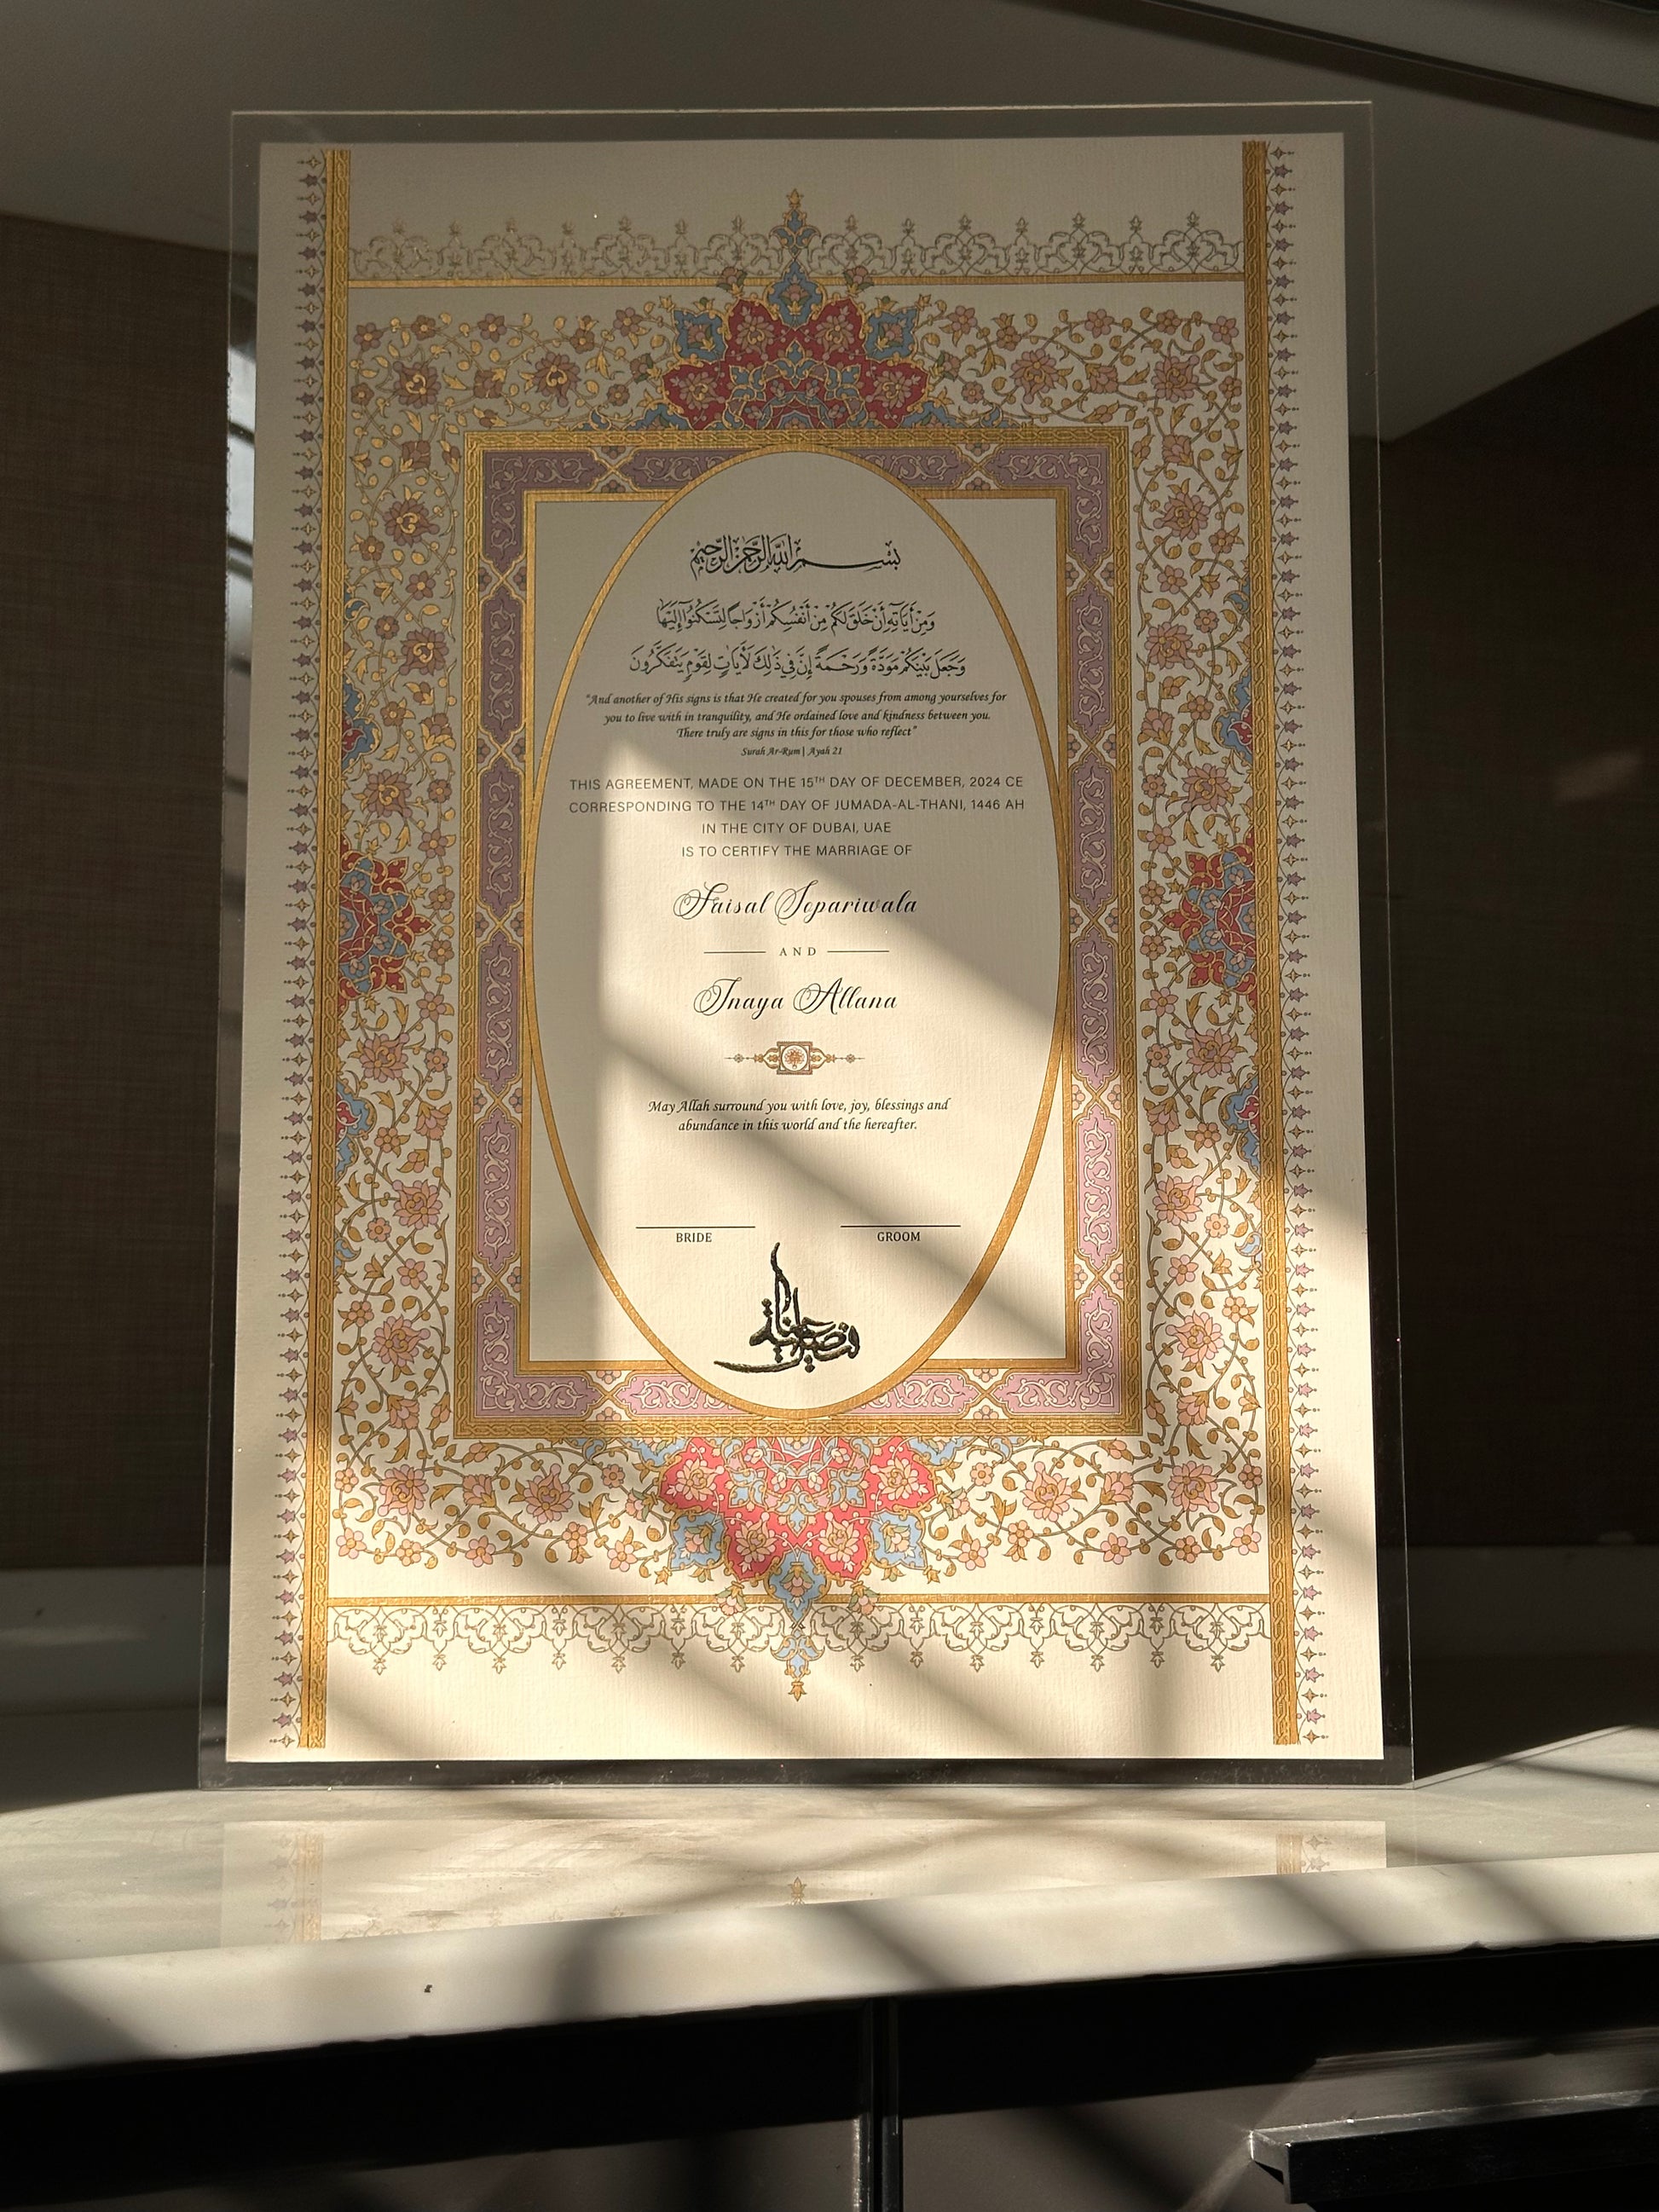 بسم الله الرحمن الرحيم
وَمِنْ أَيَاتِهِ أَنْ خَلَقَ لَكُمْ مِنْ أَنْفُسِكُمْ أَزْوَاجًا لِتَسْكُنُوا إِلَيْهَا
وَجَعَلَ بَيْنَكُمْ مَوَدَّةً وَرَحْمَةً إِنَّ فِي ذَلِكَ لَأَيَاتٍ لِقَوْمٍ يَتَفَكَّرُونَ
"And another of His signs is that He created for you spouses from among yourselves for
you to live with in tranquility, and He ordained love and kindness between you.
There truly are signs in this for those who reflect"
Surah Ar-Rum | Ayah 21
THIS AGREEMENT, MADE ON THE 15TH DAY OF DECEMBER, 2024 CE
CORRESPONDING TO THE 14TH DAY OF JUMADA-AL-THANI, 1446 AH
IN THE CITY OF DUBAI, UAE
IS TO CERTIFY THE MARRIAGE OF
Faisal Sopariwala
AND
Inaya Allana
May Allah surround you with love, joy, blessings and
abundance in this world and the hereafter.
BRIDE GROOM